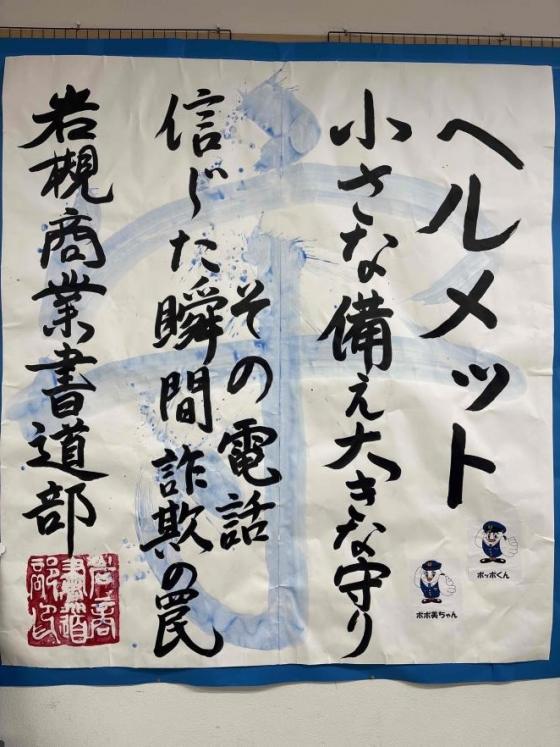 ヘルメット
小さな備え大きな守り
その電話
信じた瞬間詐欺の罠
岩槻商業書道部
ポッポくん
ポポ美ちゃん